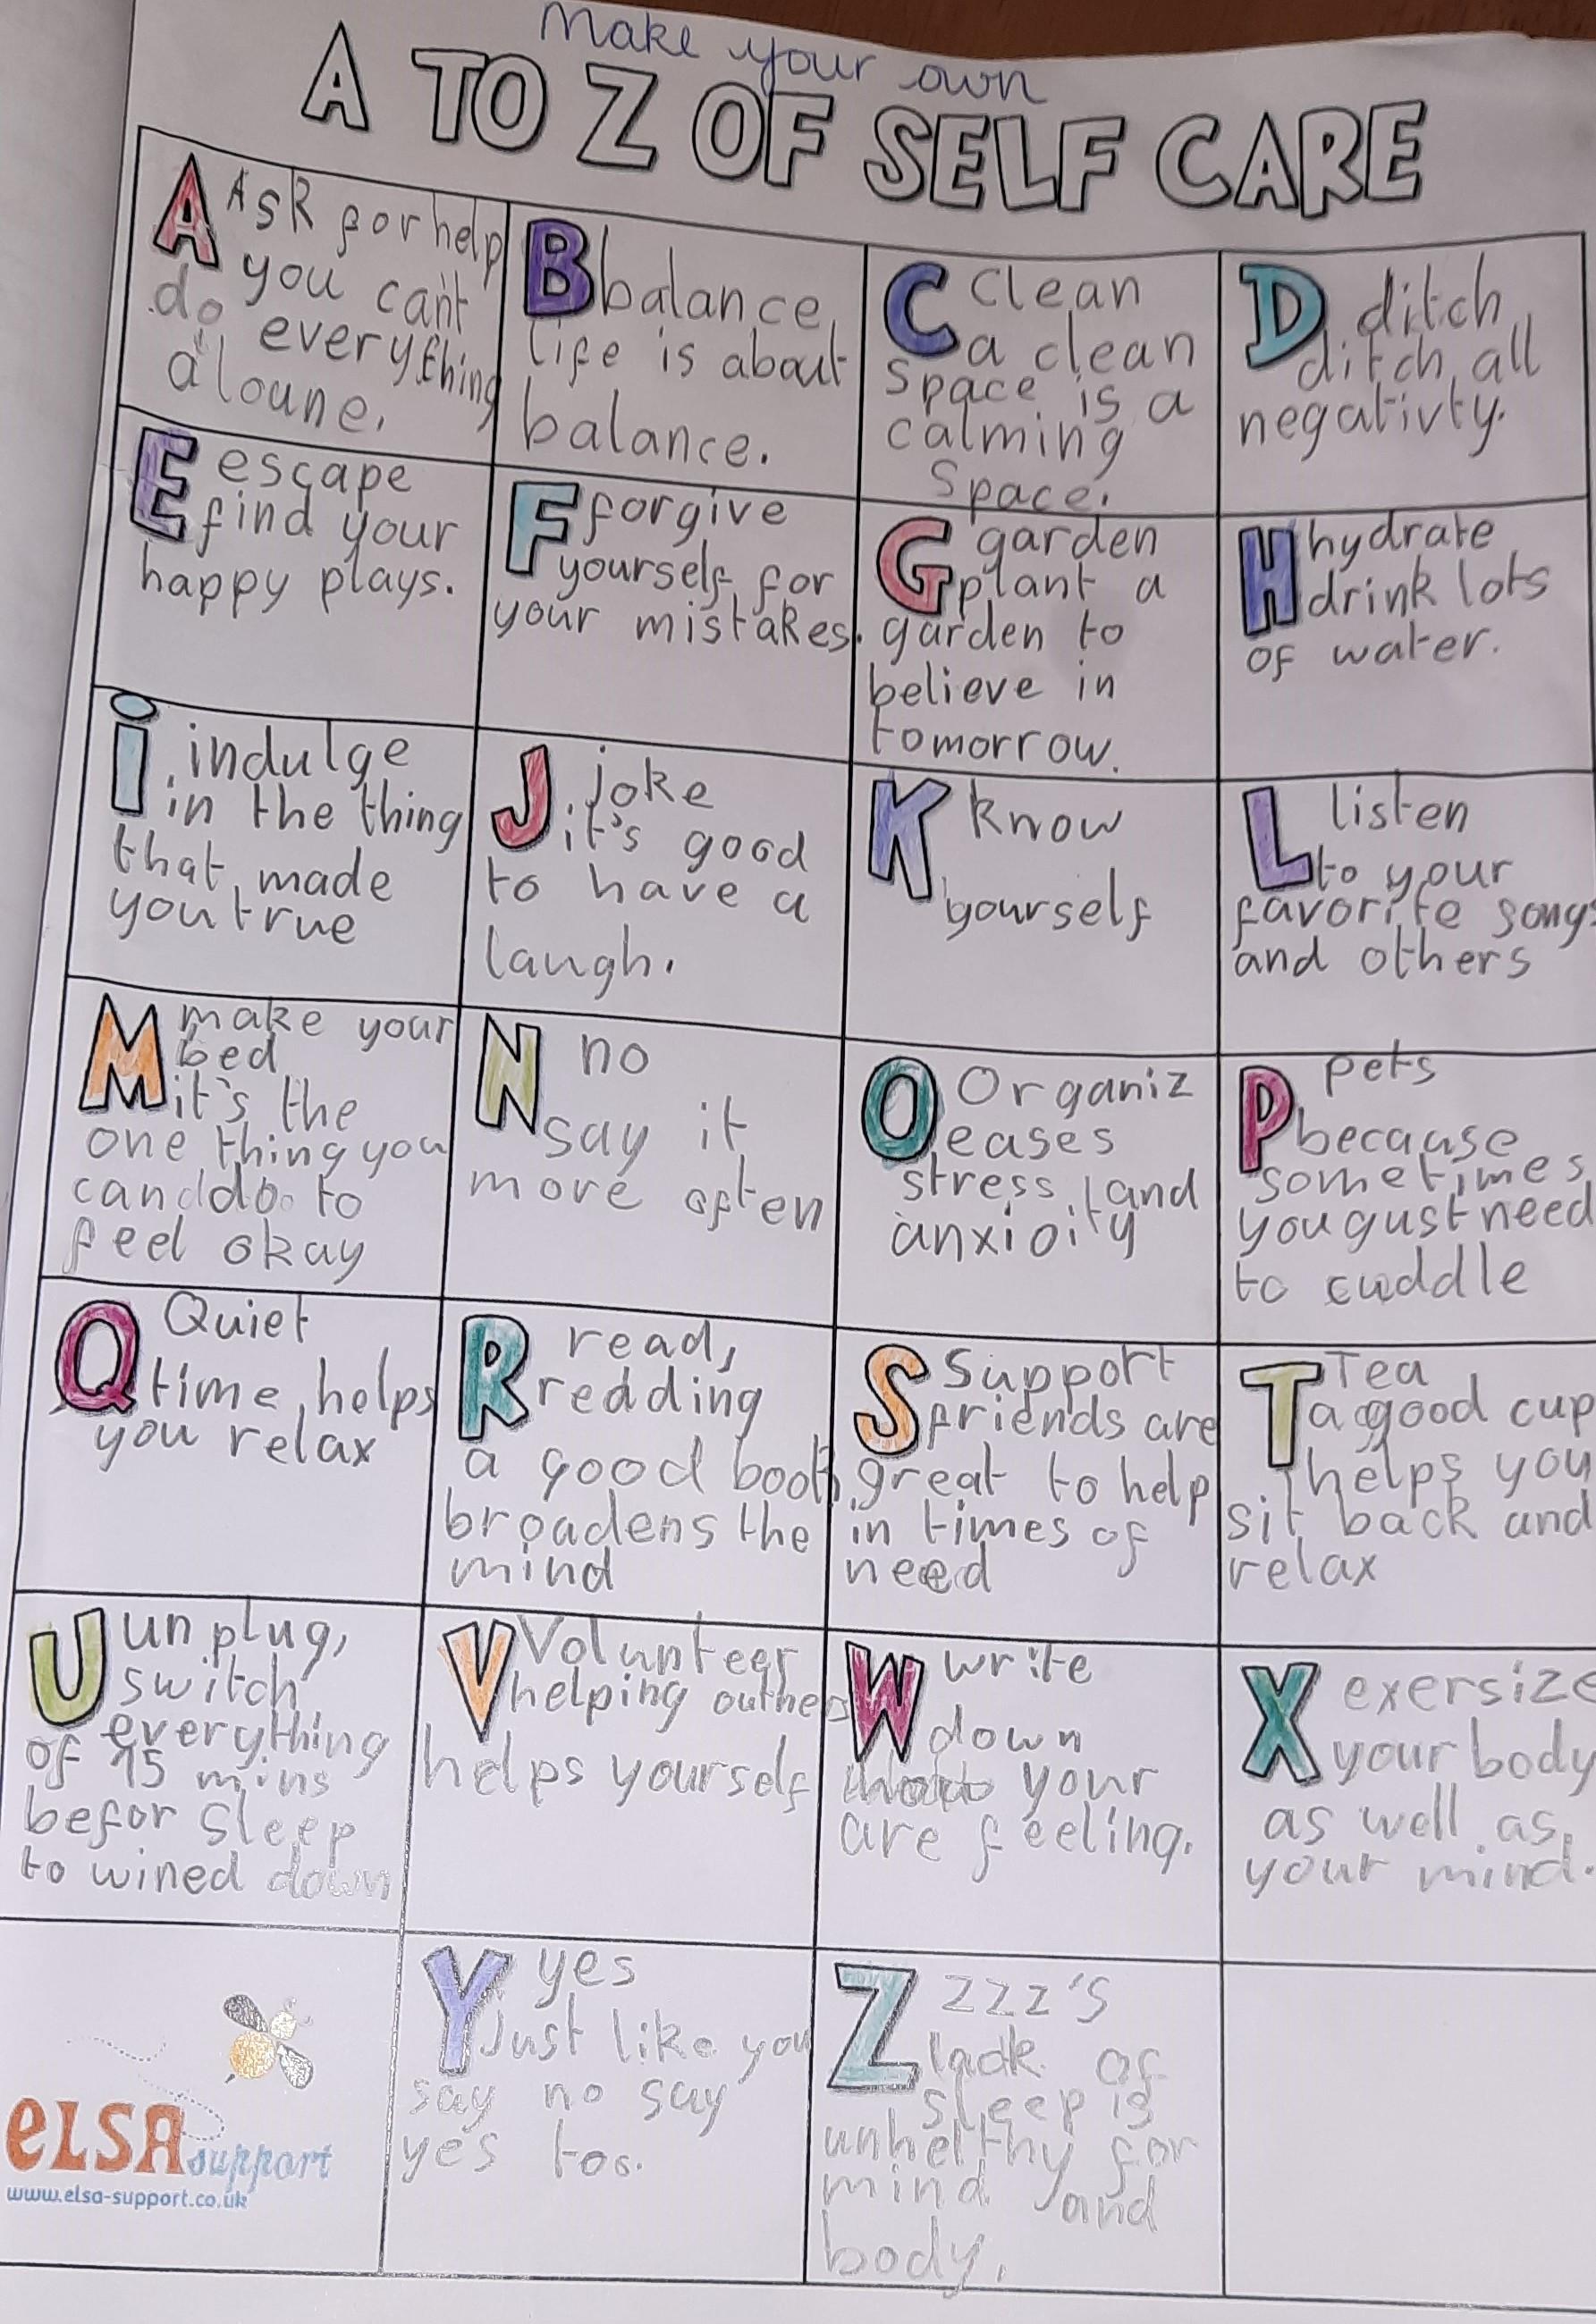 Make your own
A TO Z OF SELF CARE
A Ask for help
you can't
do everything
aloune.
B balance
life is about
balance.
C clean
a clean
space is a
calming
space.
D ditch
ditch all
negativty.
E escape
find your
happy plays.
F forgive
yourself for
your mistakes.
G garden
plant a
garden to
believe in
tomorrow.
H hydrate
drink lots
of water.
i indulge
in the thing
that made
you true
J joke
it's good
to have a
laugh.
K know
yourself
L listen
to your
favorite songs
and others
M make your
bed
it's the
one thing you
can do to
feel okay
N no
say it
more often
O Organiz
eases
stress and
anxioity
P pets
because
sometimes
you gust need
to cuddle
Q Quiet
time helps
you relax
R read,
redding
a good book
broadens the
mind
S Support
friends are
great to help
in times of
need
T Tea
a good cup
helps you
sit back and
relax
U unplug,
switch
everything
of 15 mins
befor sleep
to wined down
V Volunteer
helping outhers
helps yourself
W write
down
your
are feeling.
X exersize
your body
as well as
your mind.
eLSA support
www.elsa-support.co.uk
Y yes
Just like you
say no say
yes too.
Z zzz's
lack of
sleep is
unhelthy for
mind and
body.